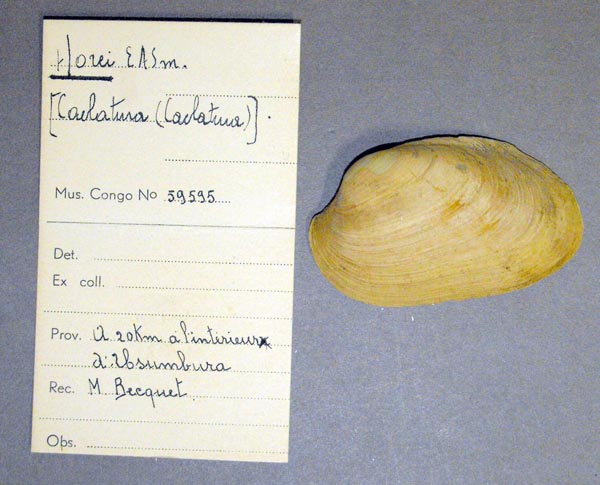 Horei EASm.
[Caelatura (Caelatura)].
Mus. Congo No 59595
Det.
Ex coll.
Prov. A 20Km à l'intérieur
d'Usumbura
Rec. M. Becquet
Obs.